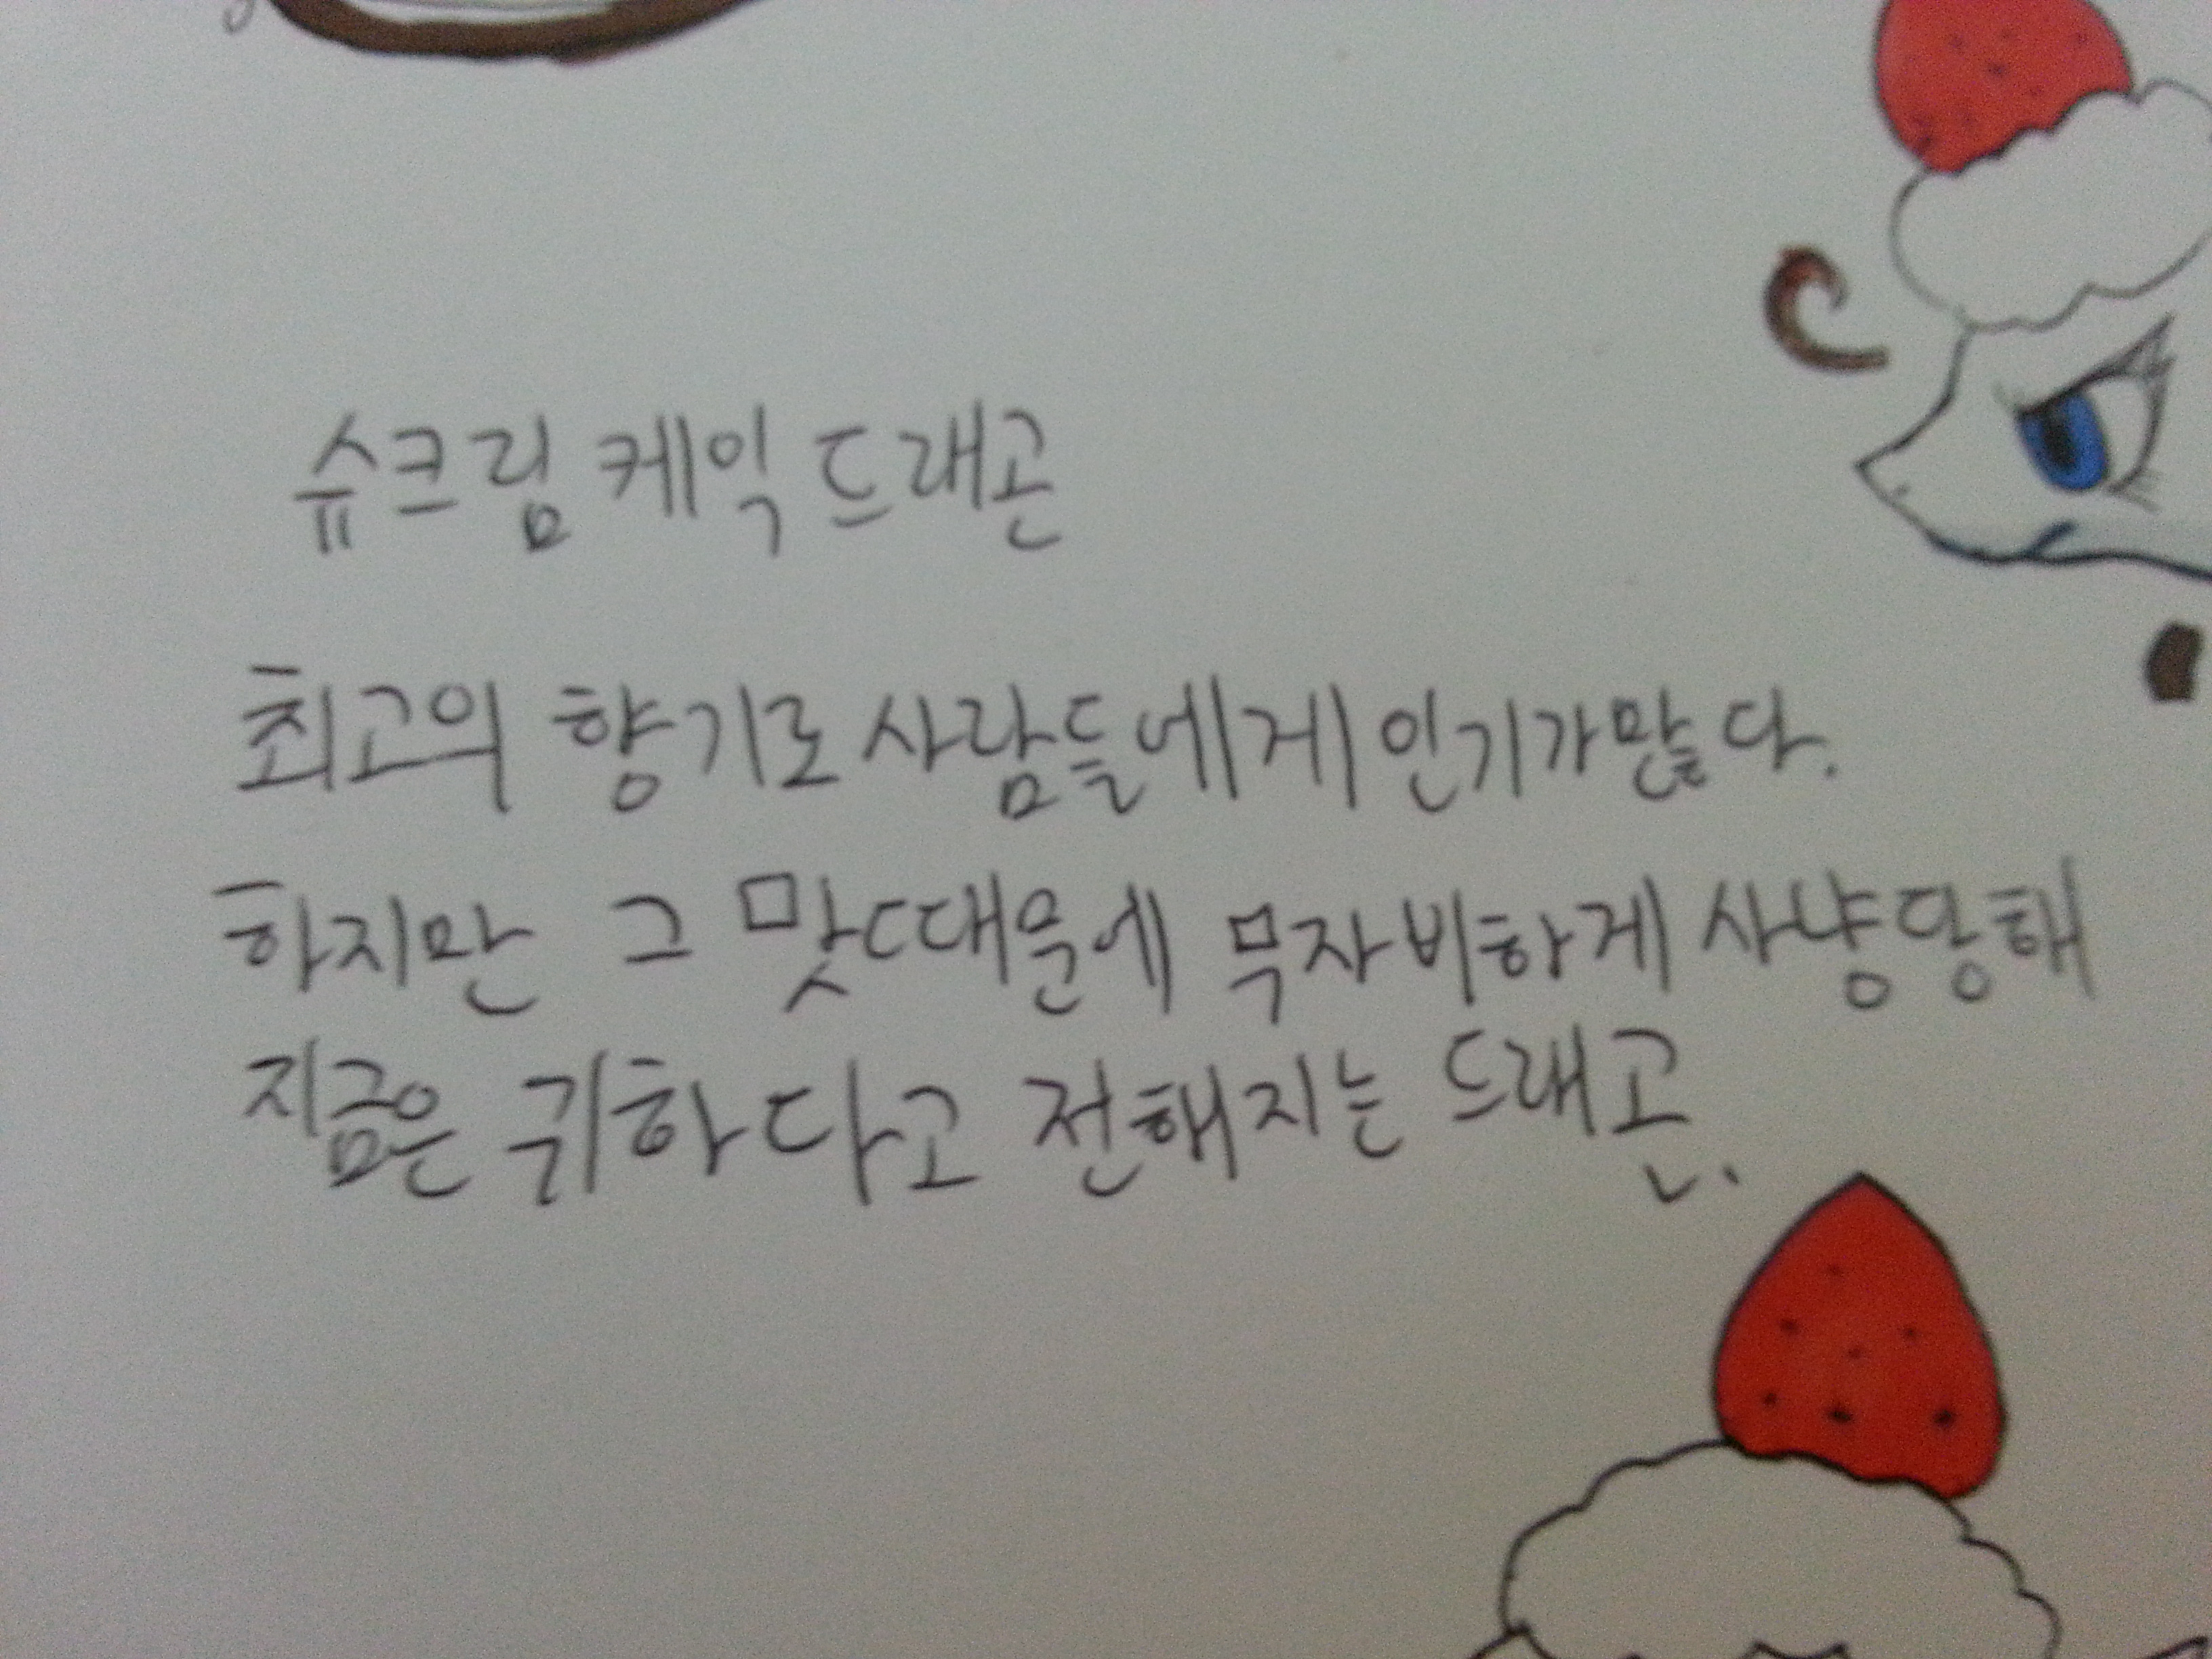 슈크림 케익 드래곤
최고의 향기로 사람들에게 인기가 많다.
하지만 그 맛 때문에 무자비하게 사냥당해
지금은 귀하다고 전해지는 드래곤.